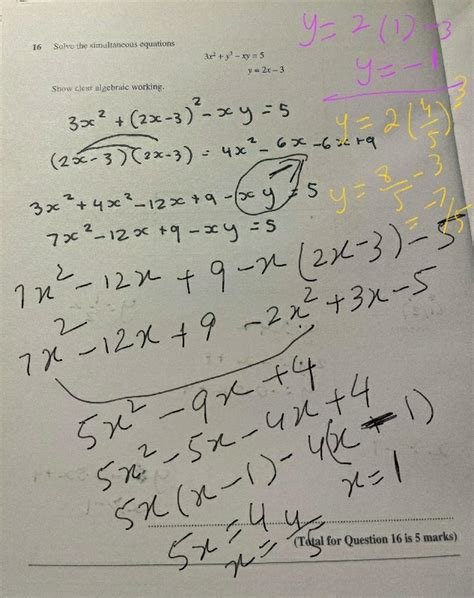 16 Solve the simultaneous equations
3x² + y² − xy = 5
y = 2x − 3
Show clear algebraic working.
3x² + (2x-3)² - xy = 5
(2x-3)(2x-3) = 4x² - 6x - 6x + 9
3x² + 4x² - 12x + 9 - xy = 5
7x² - 12x + 9 - xy = 5
7x² - 12x + 9 - x(2x-3) - 5
7x² - 12x + 9 - 2x² + 3x - 5
5x² - 9x + 4
5x² - 5x - 4x + 4
5x(x-1) - 4(x-1)
x = 1
5x = 4
x = 4/5
(Total for Question 16 is 5 marks)
y = 2(1) - 3
y = -1
y = 2(4/5) - 3
y = 8/5 - 3
= -7/5